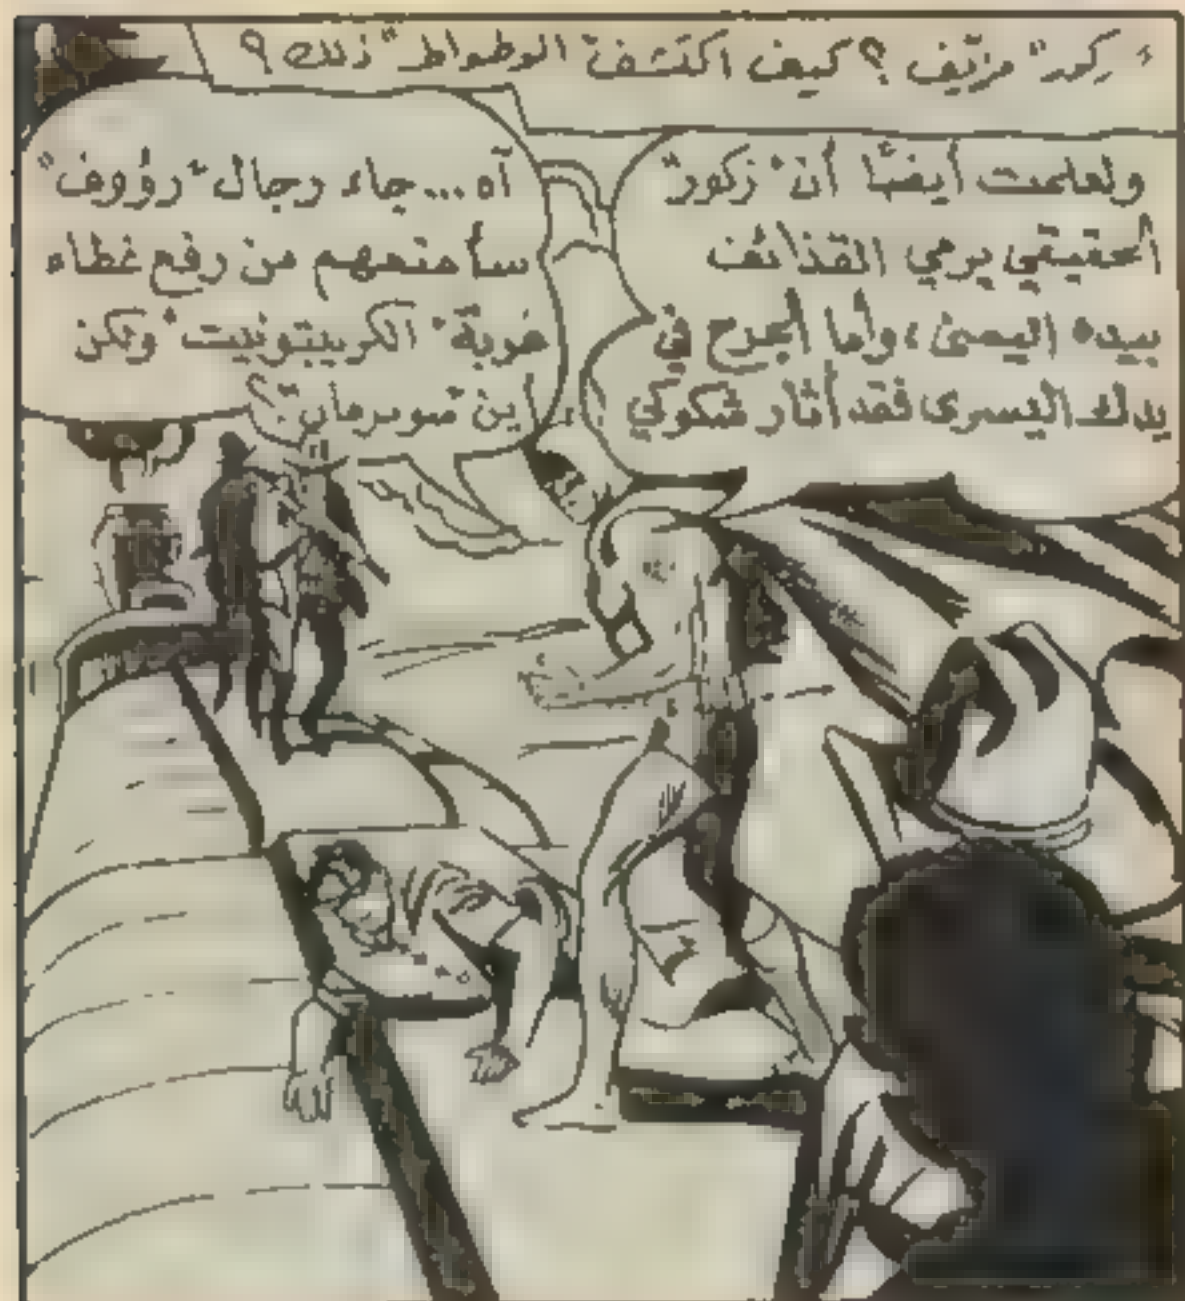 "كِد" مزيّف ؟ كيف اكتشفت الوطواط" ذلك ؟
ولعلمت أيضًا أن "زكور"
الحقيقي يرمي القذائف
بيده اليمنى، وأما الجرح في
يدك اليسرى فقد أثار شكوكي
آه... جاء رجال "رؤوف"
سأمنعهم من رفع غطاء
عربة "الكريبتونيت" ولكن
أين "سوبرمان"؟